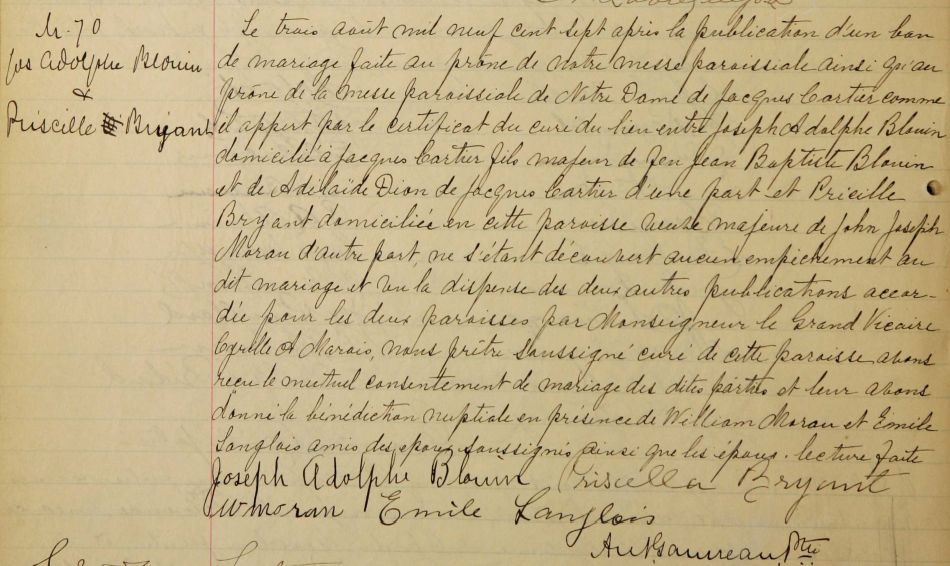 M. 70
Jos Adolphe Blouin
&
Priscille Bryant
Le trois août mil neuf cent sept après la publication d'un ban
de mariage faite au prône de notre messe paroissiale ainsi qu'au
prône de la messe paroissiale de Notre Dame de Jacques Cartier comme
il appert par le certificat du curé du lieu entre Joseph Adolphe Blouin
domicilié à Jacques Cartier fils majeur de feu Jean Baptiste Blouin
et de Adilaïde Dion de Jacques Cartier d'une part et Pricille
Bryant domiciliée en cette paroisse veuve majeure de John Joseph
Moran d'autre part, ne s'étant découvert aucun empêchement au
dit mariage et vu la dispense des deux autres publications accor-
dée pour les deux paroisses par Monseigneur le Grand Vicaire
Cyrille A Marois, nous prêtre soussigné curé de cette paroisse avons
reçu le mutuel consentement de mariage des dites parties et leur avons
donné la bénédiction nuptiale en présence de William Moran et Emile
Langlois amis des epoux soussignés ainsi que les époux. lecture faite
Joseph Adolphe Blouin Priscella Bryant
W Moran Emile Langlois
Ptre